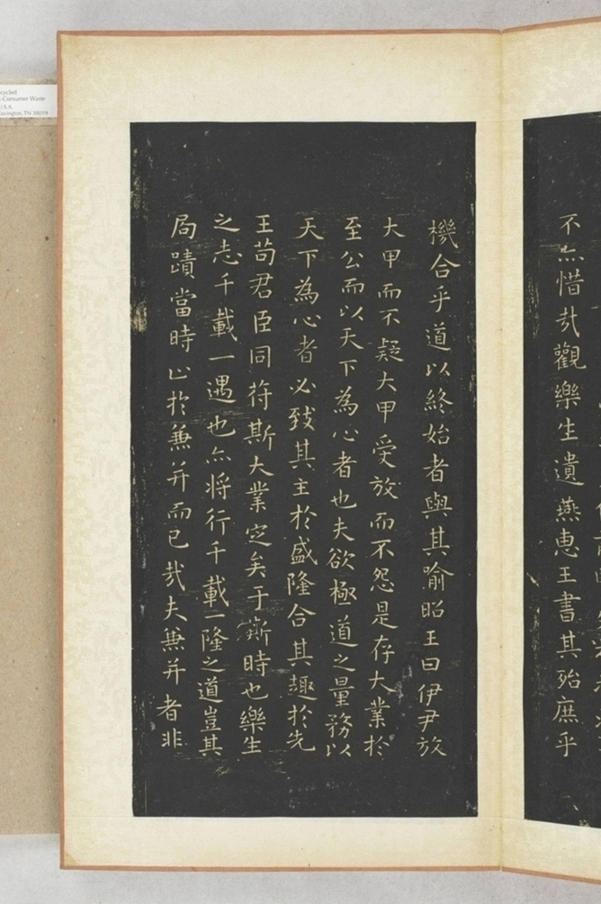 不亦惜哉觀樂生遺燕惠王書其殆庶乎
機合乎道以終始者與其喻昭王曰伊尹放
大甲而不疑大甲受放而不怨是存大業於
至公而以天下為心者也夫欲極道之量務以
天下為心者必致其主於盛隆合其趣於先
王苟君臣同符斯大業定矣于斯時也樂生
之志千載一遇也亦将行千載一隆之道豈其
局蹟當時止於兼并而已哉夫兼并者非
cycled
-Consumer Waste